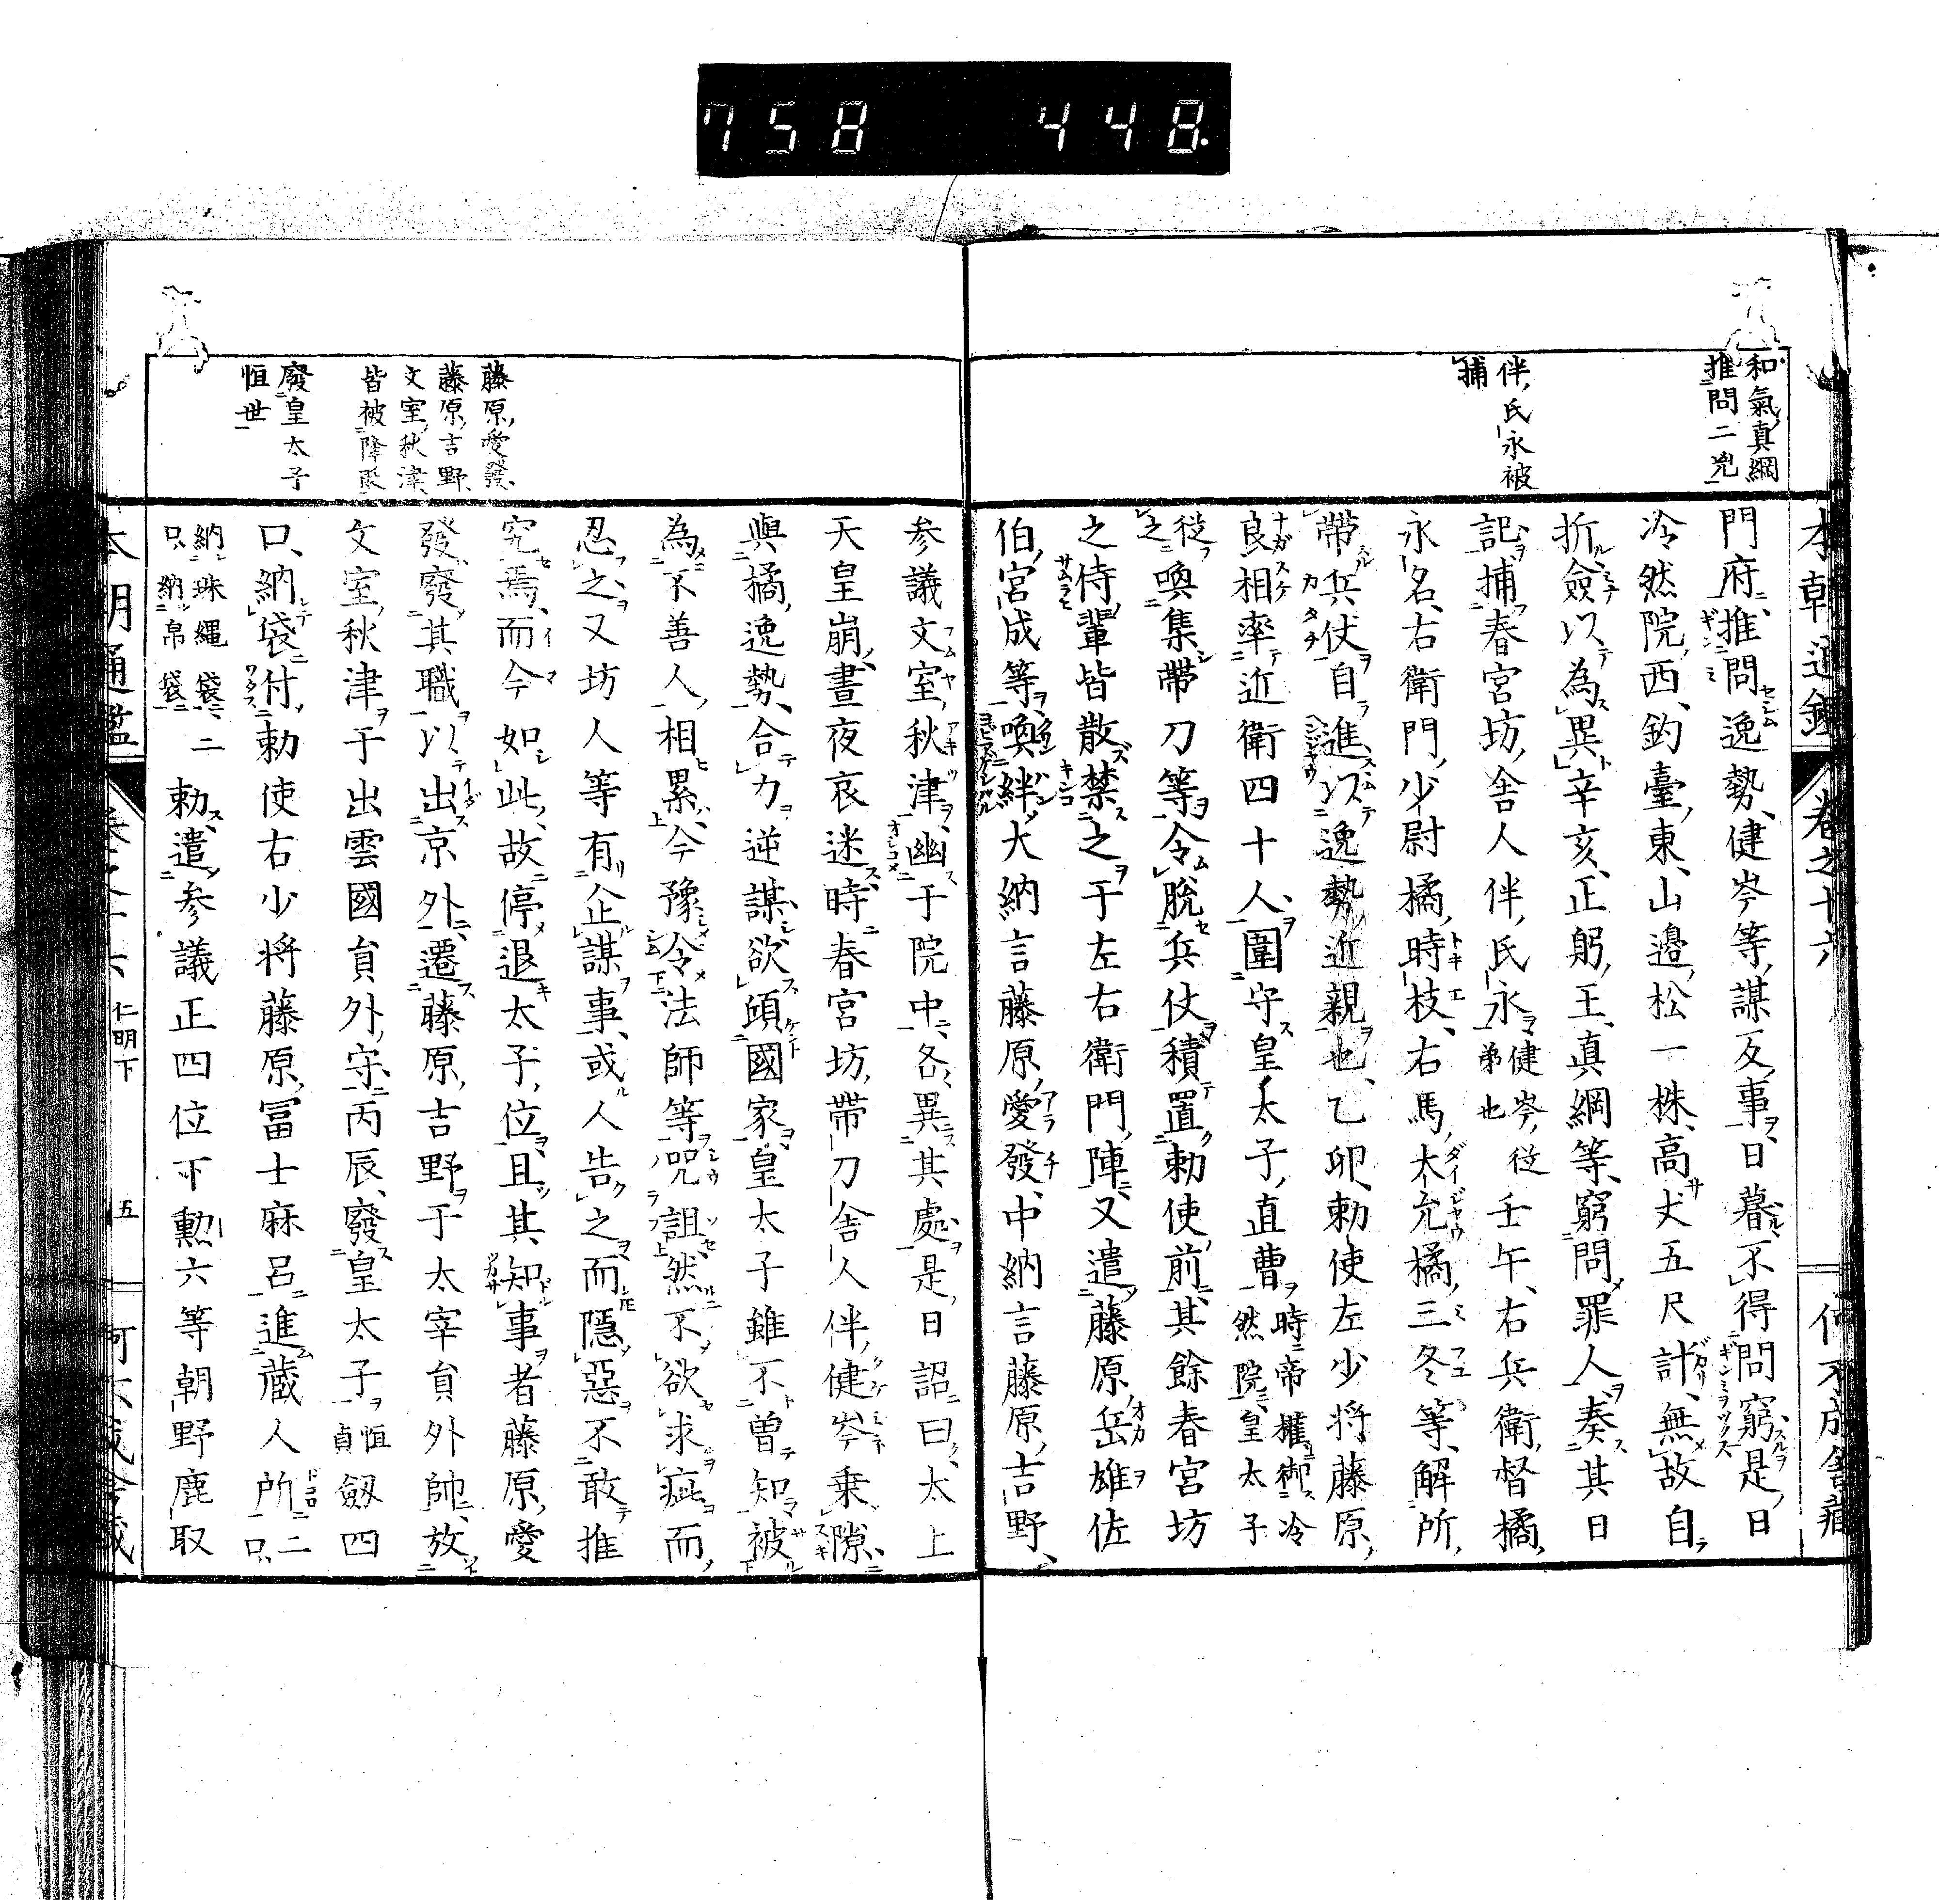 758 448.
本朝通鑑 卷之十六 何不成舎蔵
和氣真綱
推問二兇
伴氏永被
捕
門府推問逸勢健岑等謀反事日暮不得問窮是日
冷然院西釣臺東山邊松一株高丈五尺計無故自
折僉以為異辛亥正躬王真綱等窮問罪人奏其日
記捕春宮坊舎人伴氏永健岑從弟也壬午右兵衛督橘
永名右衛門少尉橘時枝右馬大允橘三冬等解所
帶兵仗自進以逸勢近親也乙卯勅使左少将藤原
良相率近衛四十人圍守皇太子直曹時帝權御冷然院皇太子
從之喚集帶刀等令脱兵仗積置勅使前其餘春宮坊
之侍輩皆散禁之于左右衛門陣又遣藤原岳雄佐
伯宮成等喚絆大納言藤原愛發中納言藤原吉野
藤原愛發
藤原吉野
文室秋津
皆被降貶
廢皇太子
恒世
参議文室秋津幽于院中各異其處是日詔曰太上
天皇崩晝夜哀迷時春宮坊帶刀舎人伴健岑乗隙
與橘逸勢合力逆謀欲傾國家皇太子雖不曽知被
為不善人相累今豫令法師等咒詛然不欲求疵而
忍之又坊人等有企謀事或人告之而隠惡不敢推
究焉而今如此故停退太子位且其知事者藤原愛
發廢其職以出京外遷藤原吉野于太宰員外帥放
文室秋津于出雲國員外守丙辰廢皇太子恒貞劔四
口納袋付勅使右少将藤原冨士麻呂進藏人所二口
納珠縄袋二口納帛袋勅遣参議正四位下勲六等朝野鹿取
本朝通鑑 卷之十六 仁明下 五 何不成舎蔵